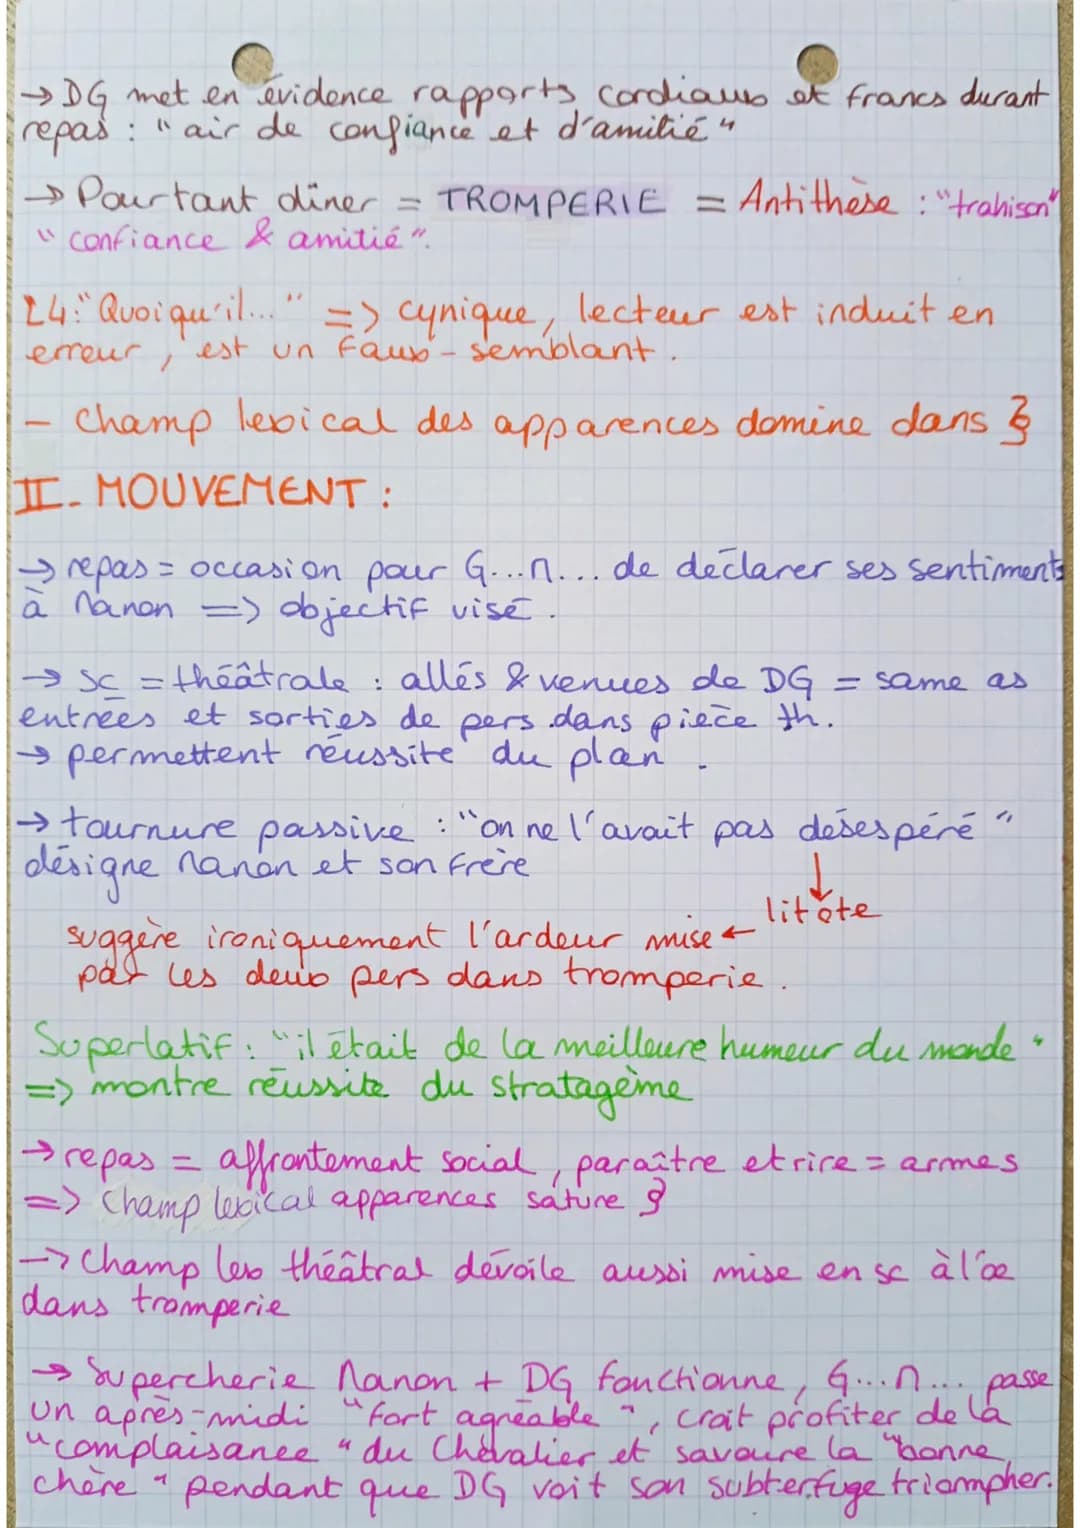 → DG met en évidence rapports cordiaux et francs durant
repas : "air de confiance et d'amitié"
→ Pourtant dîner = TROMPERIE = Antithèse : "trahison"
"confiance & amitié".
L4: "Quoiqu'il..." => cynique, lecteur est induit en
erreur, est un faux-semblant.
- Champ lexical des apparences domine dans §
II- MOUVEMENT :
→ repas = occasion pour G...M... de déclarer ses sentiments
à Manon => objectif visé.
→ sc = théâtrale : allés & venues de DG = same as
entrées et sorties de pers dans pièce th.
→ permettent réussite du plan.
→ tournure passive : "on ne l'avait pas désespéré"
désigne Manon et son frère
litote
suggère ironiquement l'ardeur mise ←
par les deux pers dans tromperie.
Superlatif : "il était de la meilleure humeur du monde"
=> montre réussite du stratagème
→ repas = affrontement social, paraître et rire = armes
=> Champ lexical apparences sature §
→ Champ lex théâtral dévoile aussi mise en sc à l'œ
dans tromperie
→ Supercherie Manon + DG fonctionne, G...M... passe
un après-midi "fort agréable", croit profiter de la
"complaisance" du Chevalier et savoure la "bonne
chère" pendant que DG voit son subterfuge triompher.